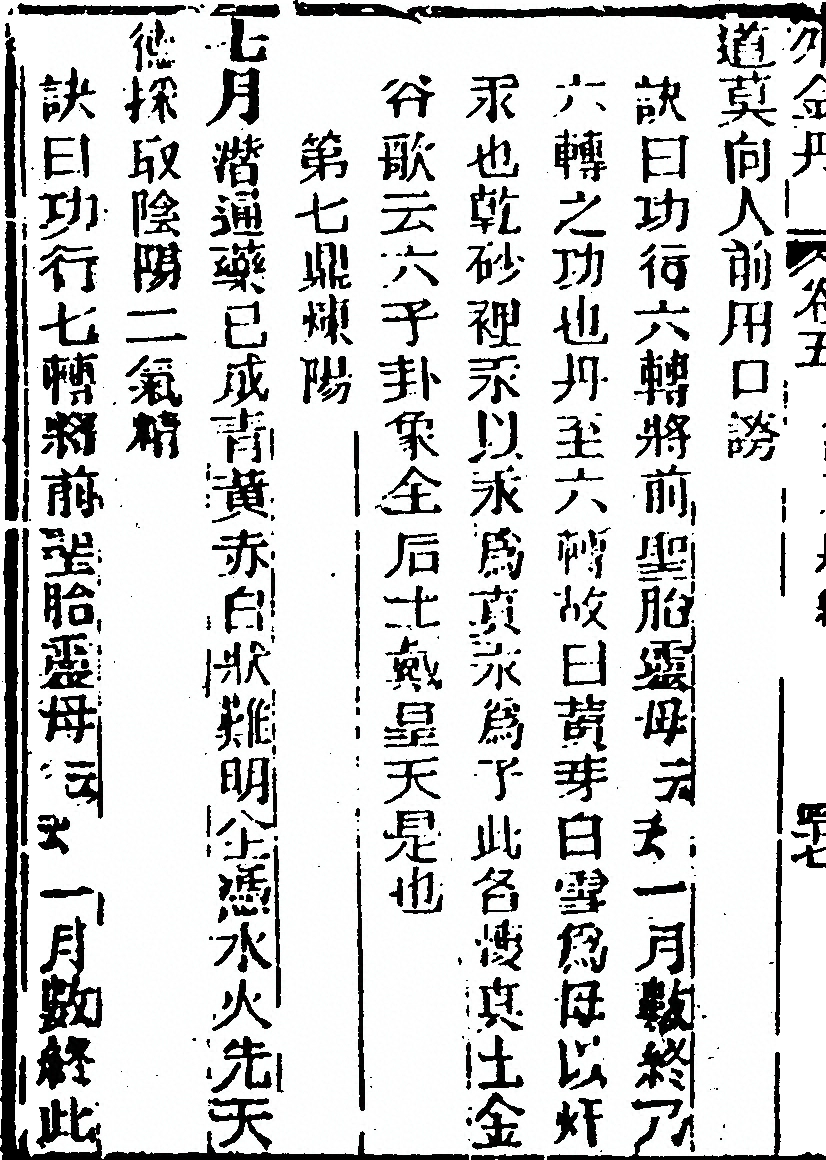 外金丹 卷五 四七
道莫向人前用口謗
訣曰功行六轉將前聖胎靈母云去一月數終乃
六轉之功也丹至六轉故曰黃芽白雪爲母以奸
汞也乾砂裡汞以汞爲真汞爲子此名煖真土金
谷歌云六子卦象全后土戴皇天是也
第七鼎煉陽
七月潛通藥已成青黃赤白狀難明全憑水火先天
德採取陰陽二氣精
訣曰功行七轉將前聖胎靈母云去一月數終此